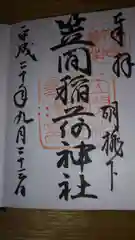 奉拝
胡桃下
笠間稲荷神社
平成二十年九月二十二日